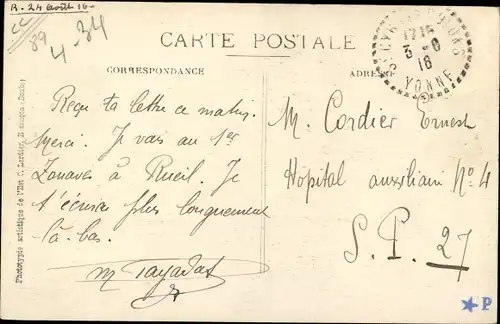 R - 24 Août 16 -
89
4-34
CARTE POSTALE
CORRESPONDANCE
ADRES
17 15
3 - 8
16
YONNE
Reçu ta lettre ce matin.
Merci. Je vais au 1er
Zouaves à Rueil. Je
t'écrirai plus longuement
là-bas.
M. Cordier Ernest
Hôpital auxiliaire No 4
S. P. 27
Phototypie artistique de l'Est C. Lardier, Besançon (Doubs)
P